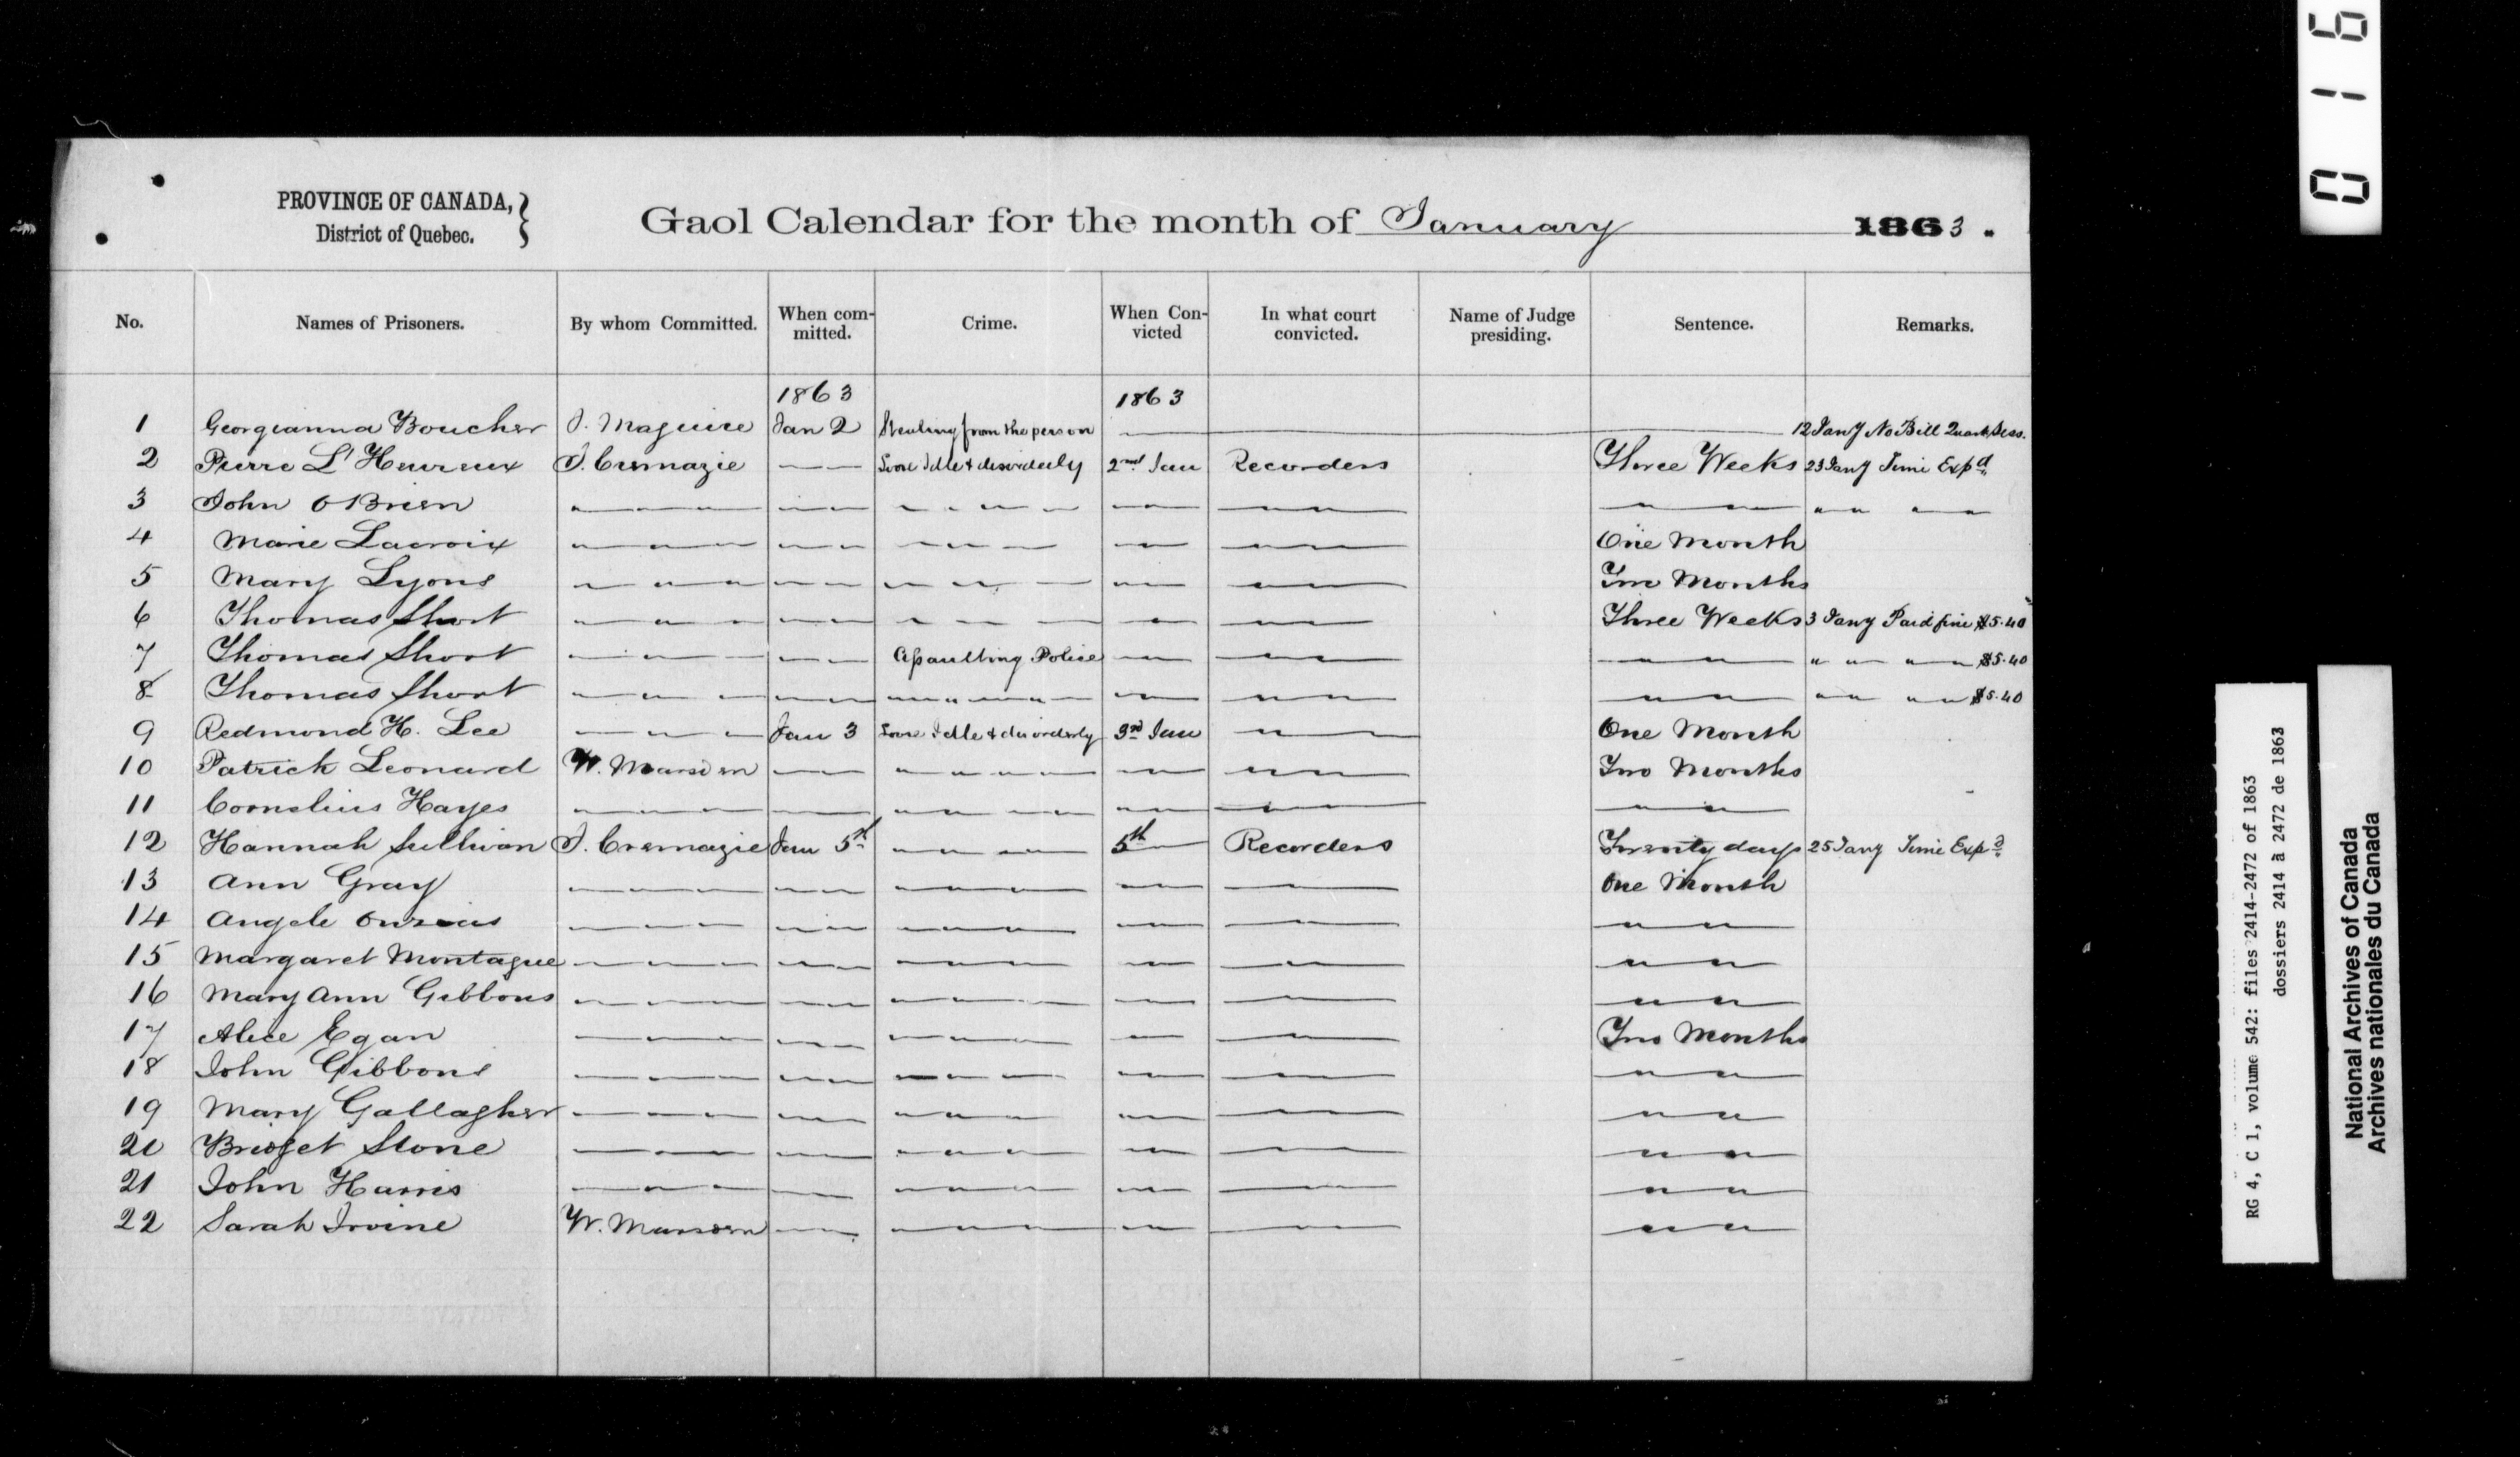 PROVINCE OF CANADA,
District of Quebec.
Gaol Calendar for the month of January 1863.
No. Names of Prisoners. By whom Committed. When committed. Crime. When Convicted In what court convicted. Name of Judge presiding. Sentence. Remarks.
1863 1863
1 Georgianna Boucher J. Maguire Jan 2 Stealing from the person — 12 Jany No Bill Quart. Sess.
2 Pierre L'Heureux J. Cremazie — — Loose Idle & disorderly 2nd Jan Recorders Three Weeks 23 Jany Time Expd
3 John O Brien " " " " " " " " " " " " " " " " " " " "
4 Marie Lacroix " " " " " " " " " " " " One Month
5 Mary Lyons " " " " " " " " " " " " Two Months
6 Thomas Short " " " " " " " " " " " " Three Weeks 3 Jany Paid fine $5.40
7 Thomas Short " " " " " Assaulting Police " " " " " " " " " $5.40
8 Thomas Short " " " " " " " " " " " " " " " " " $5.40
9 Redmond H. Lee " " " Jan 3 Loose Idle & disorderly 3rd Jan " " One Month
10 Patrick Leonard W. Marsden " " " " " " " " " " Two Months
11 Cornelius Hayes " " " " " " " " " " " " " "
12 Hannah Sullivan J. Cremazie Jan 5th " " " 5th Recorders Twenty days 25 Jany Time Expd
13 Ann Gray " " " " " " " " " " " One Month
14 Angele " " " " " " " " " " " " "
15 Margaret Montague " " " " " " " " " " " " "
16 Mary Ann Gibbons " " " " " " " " " " " " "
17 Alice Egan " " " " " " " " " " " Two Months
18 John Gibbons " " " " " " " " " " " " "
19 Mary Gallagher " " " " " " " " " " " " "
20 Bridget Stone " " " " " " " " " " " " "
21 John Harris " " " " " " " " " " " " "
22 Sarah Irvine W. Marsden " " " " " " " " " "
016
RG 4, C 1, volume 542: files 2414-2472 of 1863
dossiers 2414 à 2472 de 1863
National Archives of Canada
Archives nationales du Canada